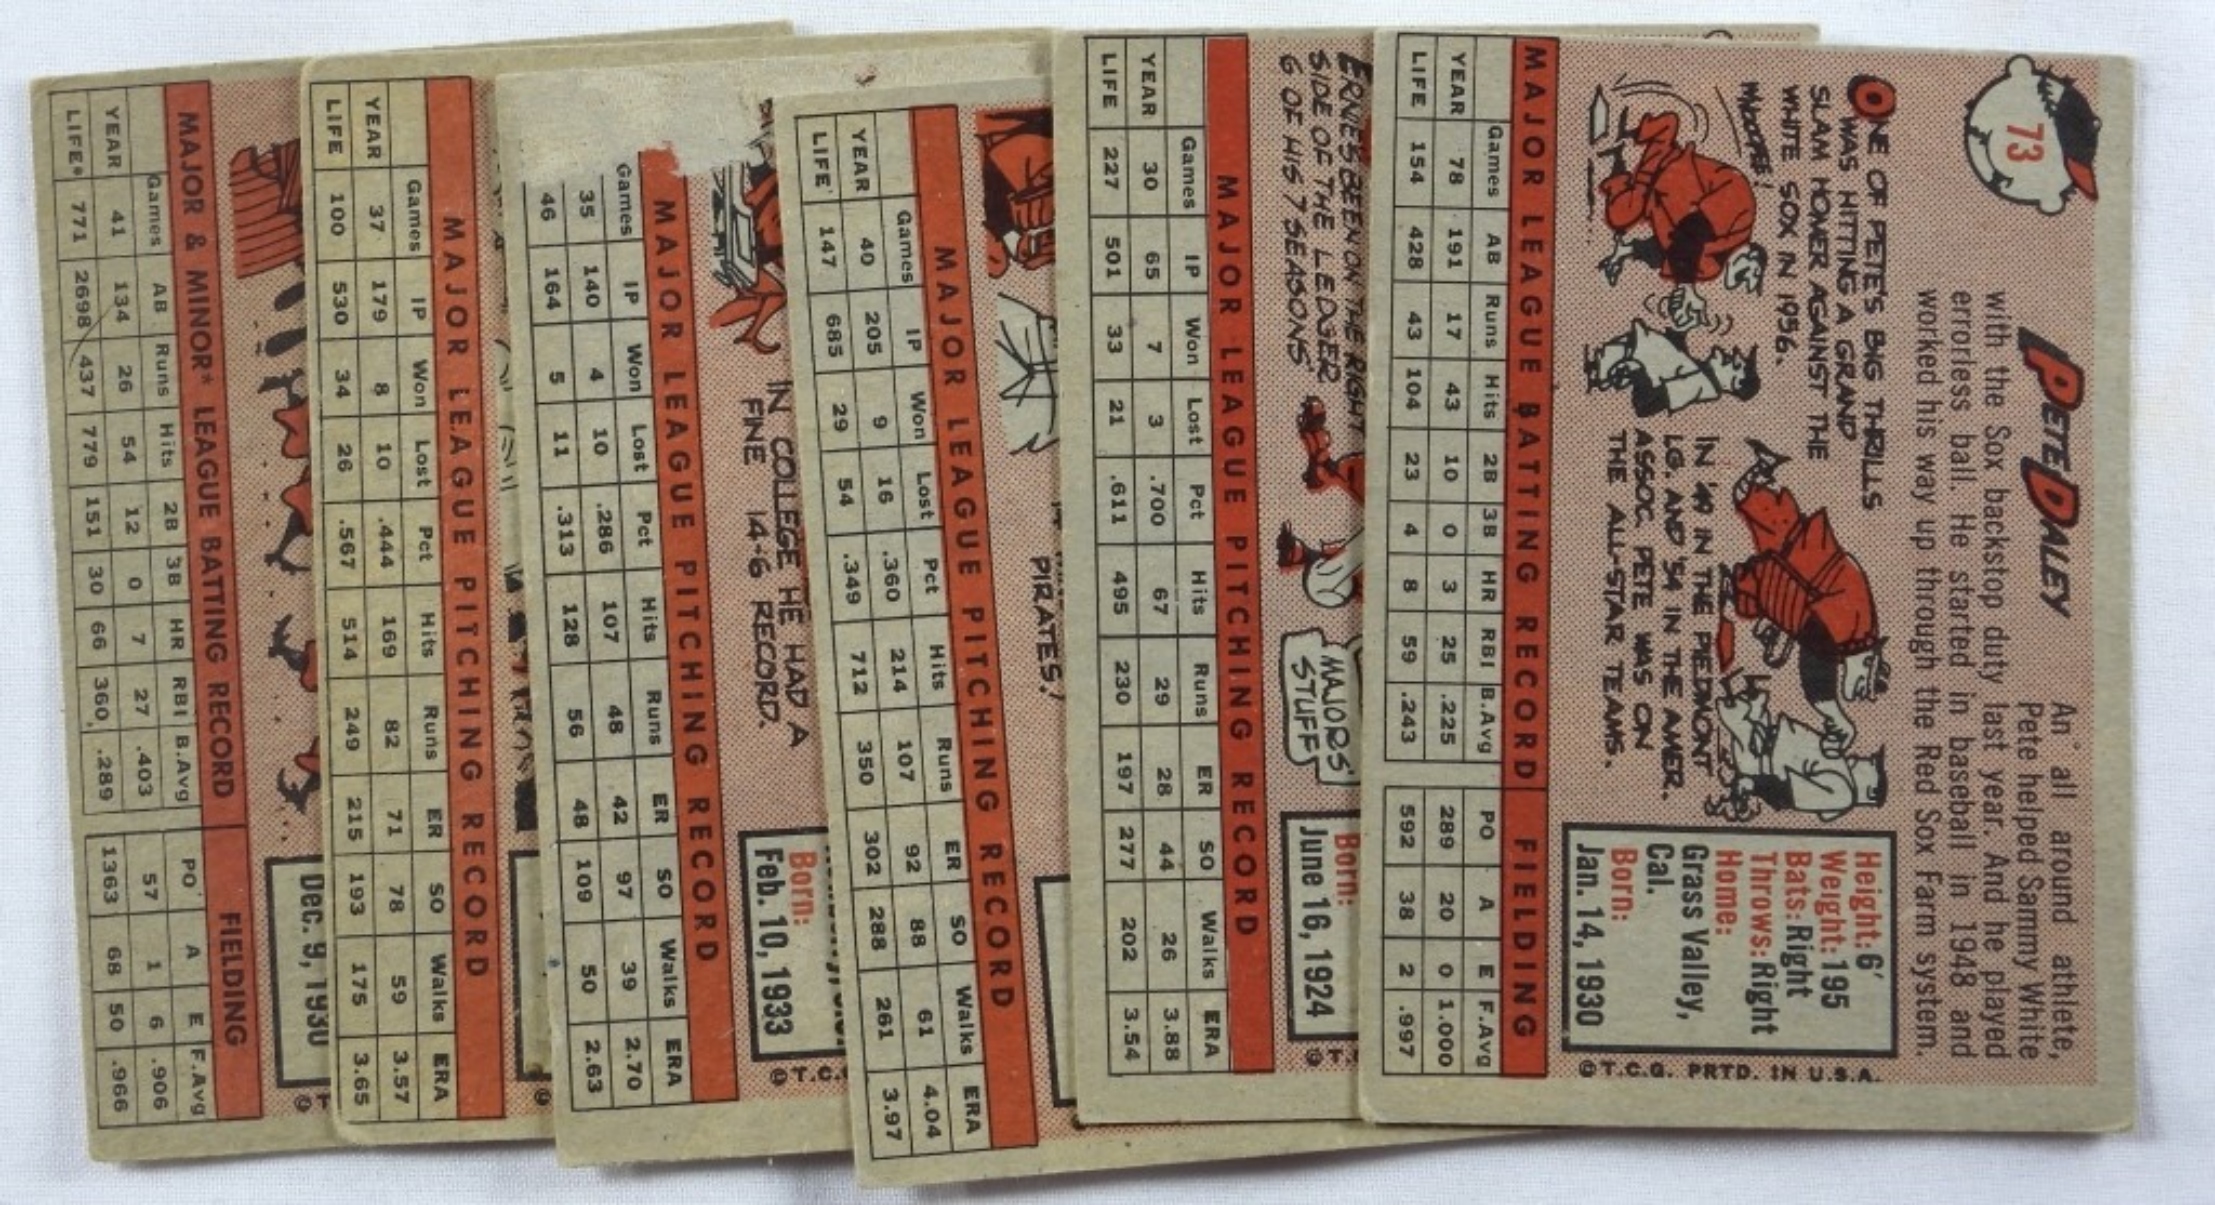 73
PETE DALEY
An all around athlete,
Pete helped Sammy White
with the Sox backstop duty last year. And he played
errorless ball. He started in baseball in 1948 and
worked his way up through the Red Sox Farm system.
ONE OF PETE'S BIG THRILLS
WAS HITTING A GRAND
SLAM HOMER AGAINST THE
WHITE SOX IN 1956.
WHOOPS!
IN '49 IN THE PIEDMONT
LG. AND '54 IN THE AMER.
ASSOC. PETE WAS ON
THE ALL-STAR TEAMS.
Height: 6'
Weight: 195
Bats: Right
Throws: Right
Home:
Grass Valley,
Cal.
Born:
Jan. 14, 1930
©T.C.G. PRTD. IN U.S.A.
MAJOR LEAGUE BATTING RECORD FIELDING
Games AB Runs Hits 2B 3B HR RBI B.Avg PO A E F.Avg
YEAR 78 191 17 43 10 0 3 25 .225 289 20 0 1.000
LIFE 154 428 43 104 23 4 8 59 .243 592 38 2 .997
ERNIE'S BEEN ON THE RIGHT
SIDE OF THE LEDGER
6 OF HIS 7 SEASONS
MAJORS'
STUFF
Born:
June 16, 1924
©T.
MAJOR LEAGUE PITCHING RECORD
Games IP Won Lost Pct Hits Runs ER SO Walks ERA
YEAR 30 65 7 3 .700 67 29 28 44 26 3.88
LIFE 227 501 33 21 .611 495 230 197 277 202 3.54
PIRATES!
MAJOR LEAGUE PITCHING RECORD
Games IP Won Lost Pct Hits Runs ER SO Walks ERA
YEAR 40 205 9 16 .360 214 107 92 88 61 4.04
LIFE 147 685 29 54 .349 712 350 302 288 261 3.97
IN COLLEGE HE HAD A
FINE 14-6 RECORD.
Born:
Feb. 10, 1933
©T.C.
MAJOR LEAGUE PITCHING RECORD
Games IP Won Lost Pct Hits Runs ER SO Walks ERA
35 140 4 10 .286 107 48 42 97 39 2.70
46 164 5 11 .313 128 56 48 109 50 2.63
©
MAJOR LEAGUE PITCHING RECORD
Games IP Won Lost Pct Hits Runs ER SO Walks ERA
YEAR 37 179 8 10 .444 169 82 71 78 59 3.57
LIFE 100 530 34 26 .567 514 249 215 193 175 3.65
Dec. 9, 1930
©T
MAJOR & MINOR* LEAGUE BATTING RECORD FIELDING
Games AB Runs Hits 2B 3B HR RBI B.Avg PO A E F.Avg
YEAR 41 134 26 54 12 0 7 27 .403 57 1 6 .906
LIFE* 771 2698 437 779 151 30 66 360 .289 1363 68 50 .966